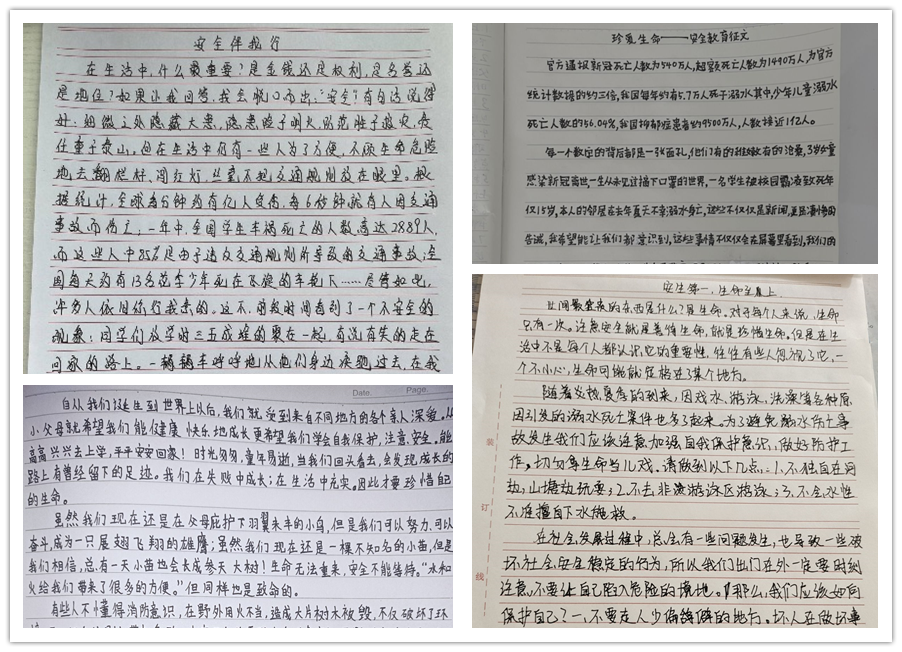 安全伴我行
在生活中,什么最重要?是金钱还是权利,是名誉还
是地位?如果让我回答,我会脱口而出:“安全”!有句话说得
好:细微之处隐藏大患,隐患险于明火,防范胜于救灾,责
任重于泰山,但在生活中仍有一些人为了方便,不顾生命危险
地去翻栏杆、闯红灯,丝毫不把交通规则放在眼里。根
据统计,全球每分钟约有亿人受伤,每6秒钟就有人因交通
事故而伤亡,一年中,全国学生车祸死亡的人数高达2889人,
而这些人中85%是由于违反交通规则所导致的交通事故,全
国每天约有13名青少年死在飞旋的车轮下……尽管如此,
许多人依旧你行我素的。这不,前段时间看到了一个不安全的
现象:同学们放学时三五成群的聚在一起,有说有笑的走在
回家的路上。一辆辆车呼呼地从他们身边疾驰过去,在我
珍爱生命——安全教育征文
官方通报新冠死亡人数为540万人,超额死亡人数为1490万人,为官方
统计数据的约三倍,我国每年约有5.7万人死于溺水其中,少年儿童溺水
死亡人数的56.04%,我国抑郁症患者约9500万人,人数接近1亿人。
每一个数字的背后都是一张面孔,他们有的稚嫩有的沧桑,3岁女童
感染新冠离世一生从未见过摘下口罩的世界,一名学生被校园霸凌致死年
仅15岁,本人的邻居在去年夏天不幸溺水身亡,这些不仅仅是新闻,更是凄惨的
告诫,我希望能让我们都意识到,这些事情不仅仅会在屏幕里看到,我们的
Date. Page.
自从我们诞生到世界上以后,我们就受到来自不同地方的各个亲人深爱。从
小父母就希望我们能健康 快乐地成长更希望我们学会自我保护,注意安全。能
高高兴兴去上学,平平安安回家! 时光匆匆,童年易逝,当我们回头看去,会发现成长的
路上有曾经留下的足迹。我们在失败中成长;在生活中充实。因此才要珍惜自己
的生命。
虽然我们现在还是在父母庇护下羽翼未丰的小鸟,但是我们可以努力,可以
奋斗,成为一只展翅飞翔的雄鹰;虽然我们现在还是一棵不知名的小苗,但是
我们相信,总有一天小苗也会长成参天大树!生命无法重来,安全不能等待。“水和
火给我们带来了很多的方便。”但同样也是致命的。
有些人不懂得消防意识,在野外用火不当,造成大片树木被毁,不仅破坏了环
安全第一,生命至上
世间最宝贵的东西是什么?是生命。对于每个人来说,生命
只有一次。注意安全就是善待生命,就是珍惜生命。但是在生
活中不是每个人都认识它的重要性,往往有些人忽视了它,一
个不小心,生命可能就定格在了某个地方。
随着炎热夏季的到来,因戏水、游泳、洗澡等各种原
因引发的溺水死亡案件也多了起来。为了避免溺水伤亡事
故发生我们应该注意加强自我保护意识,做好防护工
作。切勿拿生命当儿戏。请做到以下几点:1.不独自在河
边,山塘边玩耍;2.不去非游泳区游泳;3.不会水性
不准擅自下水施救。
在社会发展过程中,总会有一些问题发生,也导致一些破
坏社会安全稳定的行为,所以我们出门在外一定要时刻
注意,不要让自己陷入危险的境地。那么,我们应该如何
保护自己?一、不要在人少偏僻的地方。坏人在做坏事
装
订
线